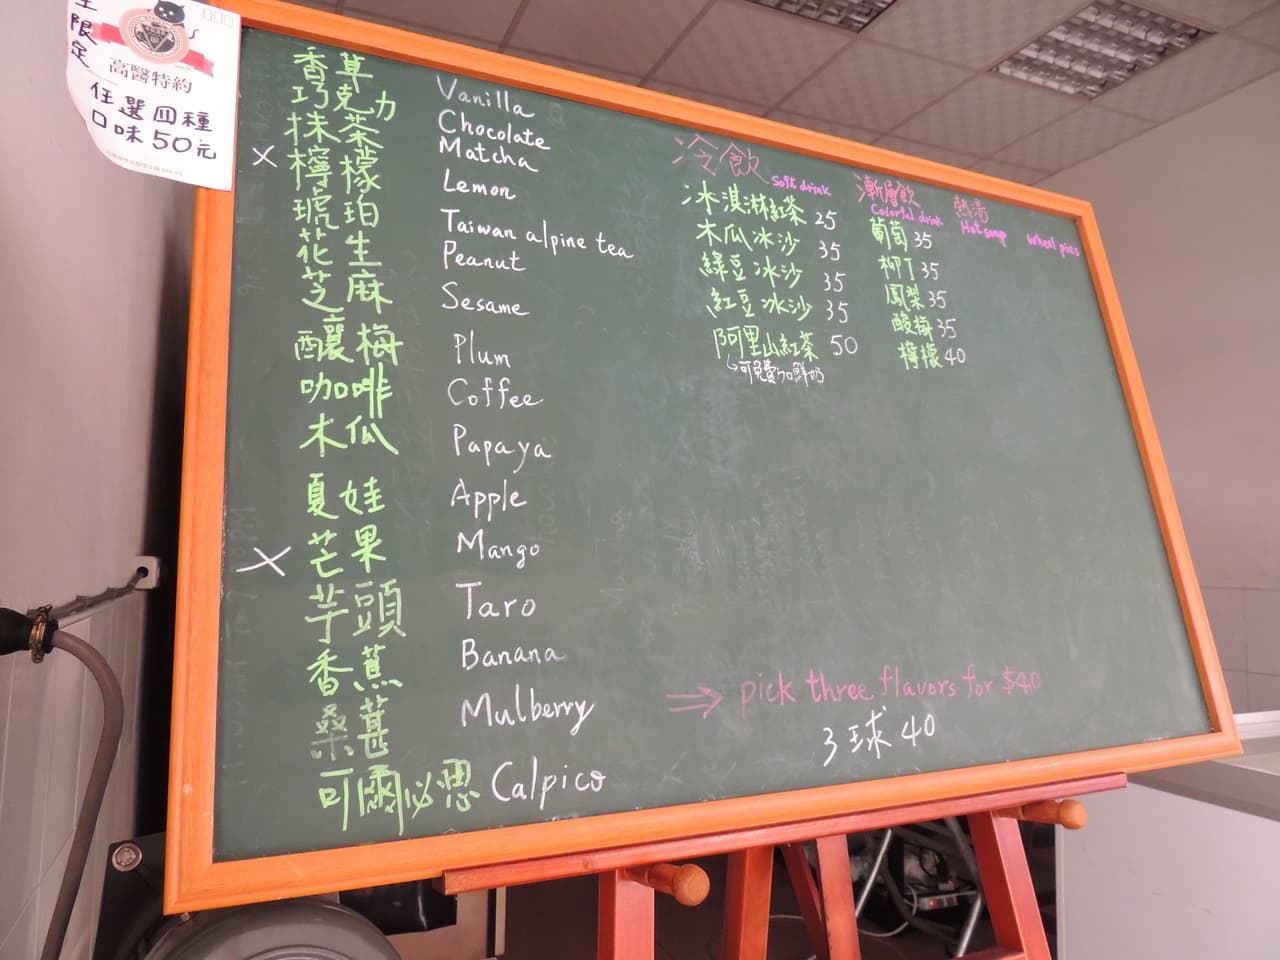 限定
高醫特約
任選四種
口味50元
香草 Vanilla
巧克力 Chocolate
抹茶 Matcha
X 檸檬 Lemon
琥珀 Taiwan alpine tea
花生 Peanut
芝麻 Sesame
釀梅 Plum
咖啡 Coffee
木瓜 Papaya
夏娃 Apple
X 芒果 Mango
芋頭 Taro
香蕉 Banana
桑葚 Mulberry
可爾必思 Calpico
冷飲 Soft drink
冰淇淋紅茶 25
木瓜冰沙 35
綠豆冰沙 35
紅豆冰沙 35
阿里山紅茶 50
↳可免費加鮮奶
漸層飲
Colorful drink
葡萄 35
柳丁 35
鳳梨 35
酸梅 35
檸檬 40
熱湯
Hot soup
wheel pies
⇒ pick three flavors for $40
3球 40